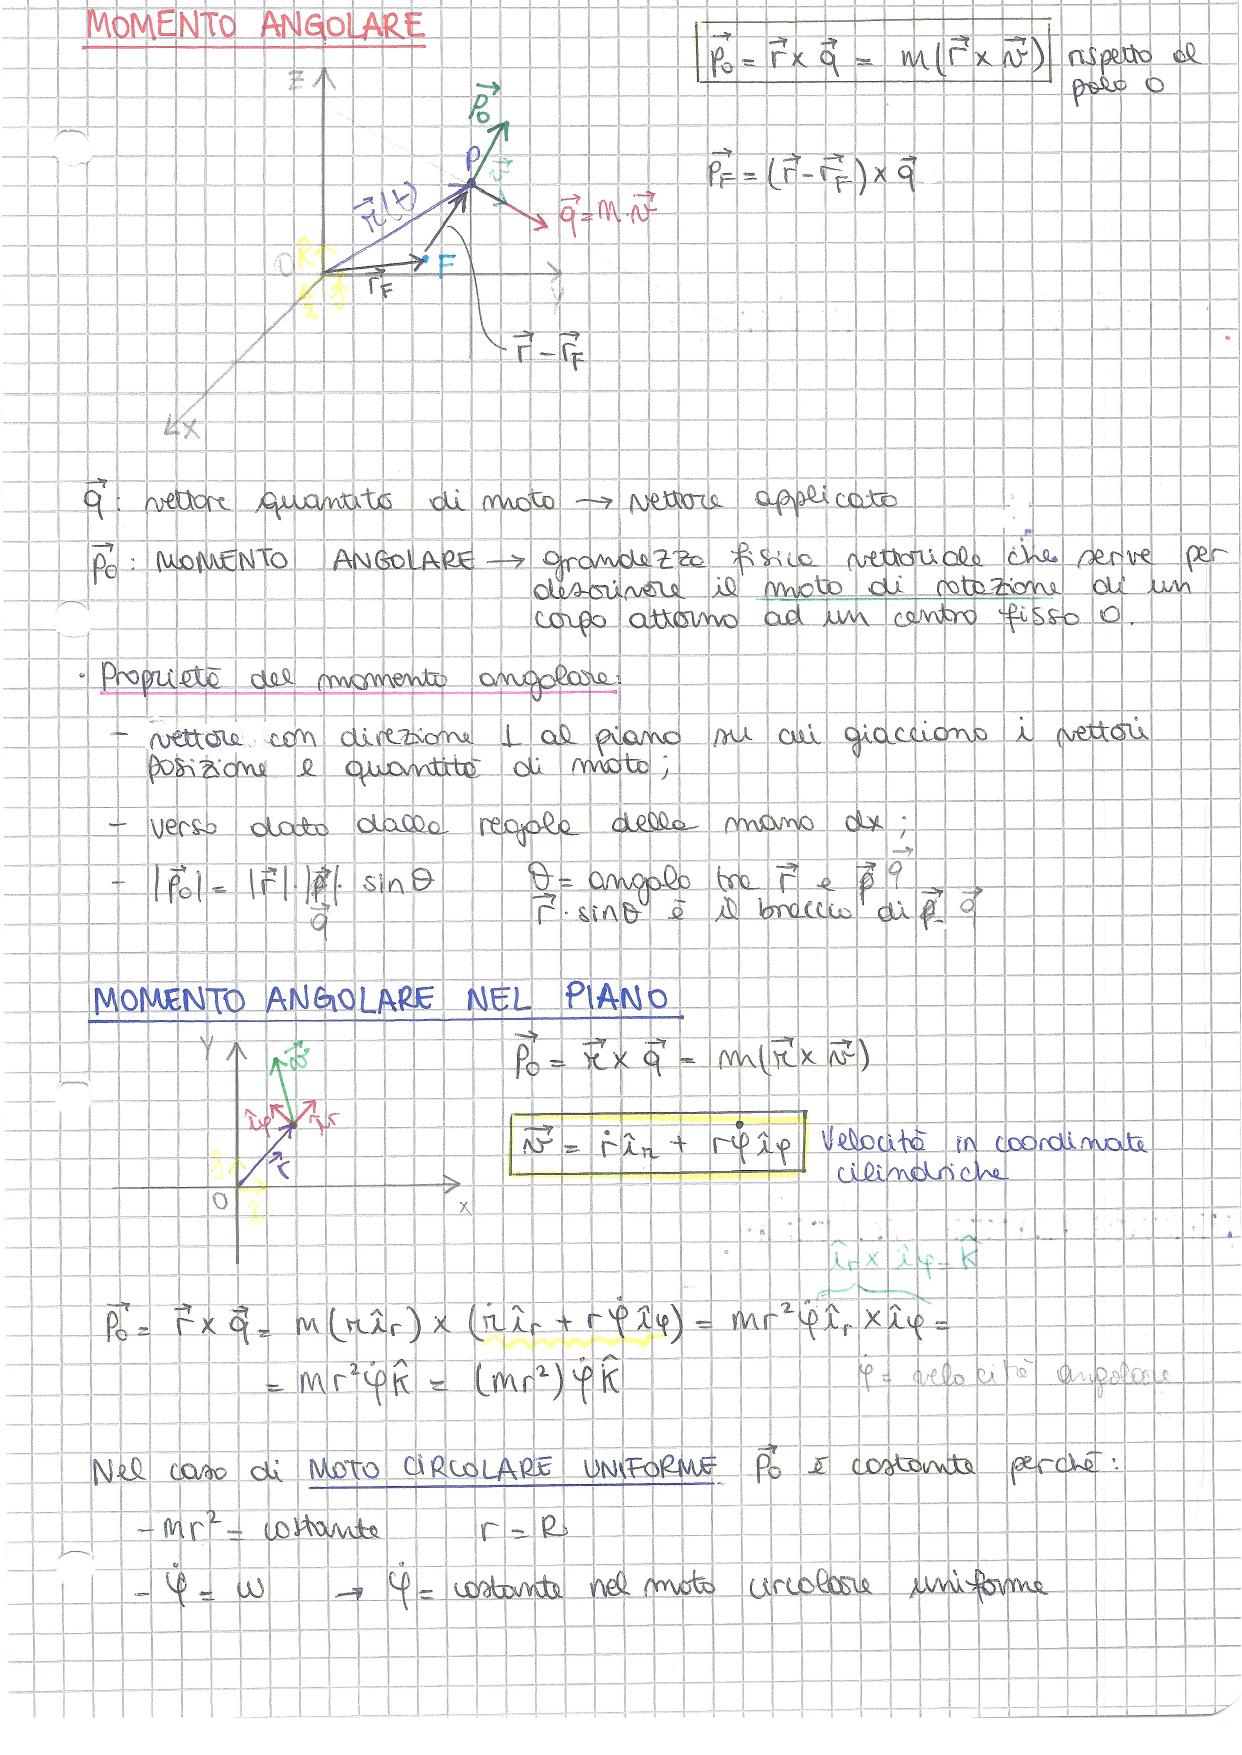 MOMENTO ANGOLARE
p⃗₀ = r⃗ × q⃗ = m(r⃗ × v⃗) rispetto al
polo O
Z
p⃗₀
P
v⃗
r⃗(t)
q⃗ = m·v⃗
p⃗_F = (r⃗ - r⃗_F) × q⃗
O
k̂
F
r⃗_F
y
î
ĵ
r⃗ - r⃗_F
x
q⃗: vettore quantità di moto → vettore applicato
p⃗₀: MOMENTO ANGOLARE → grandezza fisica vettoriale che serve per
descrivere il moto di rotazione di un
corpo attorno ad un centro fisso O.
· Proprietà del momento angolare:
- vettore con direzione ⊥ al piano su cui giacciono i vettori
posizione e quantità di moto;
- verso dato dalla regola della mano dx;
- |p⃗₀| = |r⃗|·|p⃗|· sinθ θ = angolo tra r⃗ e p⃗ q⃗
q⃗ r⃗·sinθ è il braccio di p⃗ q⃗
MOMENTO ANGOLARE NEL PIANO
Y
v⃗
p⃗₀ = r⃗ × q⃗ = m(r⃗ × v⃗)
îφ îr
r⃗
v⃗ = ṙ îr + rφ̇ îφ Velocità in coordinate
cilindriche
ĵ
O
î
x
îr × îφ = k̂
p⃗₀ = r⃗ × q⃗ = m(r îr) × (ṙ îr + rφ̇ îφ) = mr²φ̇ îr × îφ =
= mr²φ̇ k̂ = (mr²)φ̇ k̂ φ̇ = velocità angolare
Nel caso di MOTO CIRCOLARE UNIFORME p⃗₀ è costante perchè:
- mr² = costante r = R
- φ̇ = ω → φ̇ = costante nel moto circolare uniforme